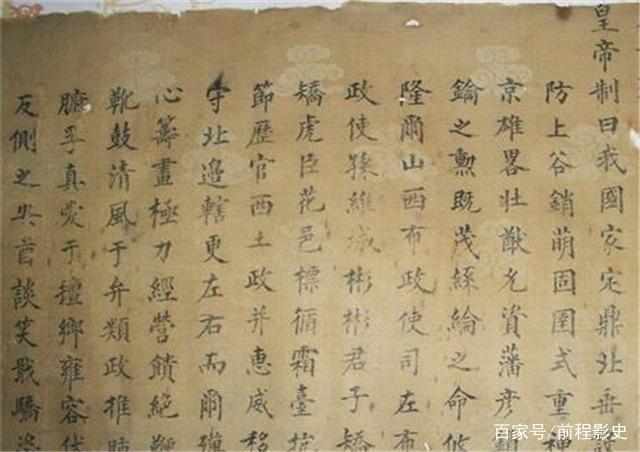 皇帝制曰我國家定鼎北垂設
防上谷銷萌固圉式重神
京雄畧壯猷允資藩彥
鑰之勲既茂絲綸之命攸
隆爾山西布政使司左布
政使孫維城彬彬君子矯
矯虎臣花邑標循霜臺抗
節歷官西土政并惠威移
守北邉轄更左右而爾殫
心籌畫極力經營饋絕鞭
靴鼓清風于弁類政推肺
孚真愛于鄉雍容伏
反側之首談笑戢驕
百家号/前程影史